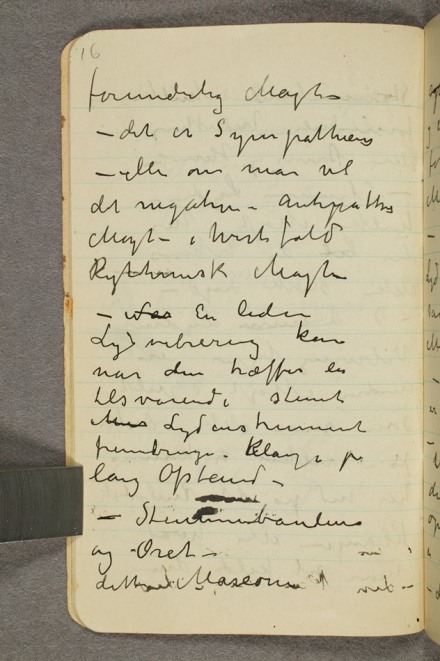 16
forunderlig Magt
– det er Sympathiens
– eller om man vil
det negative – Antipathiens
Magt – i hvert fald
Rythmisk Magt
– En liden
Lydvibrering kan
naar den træffer en
tilsvarende stemt
Lydinstrument
frembringe Klang i på
lang Afstand –
– Stemmebaandene
og Øret –
dette